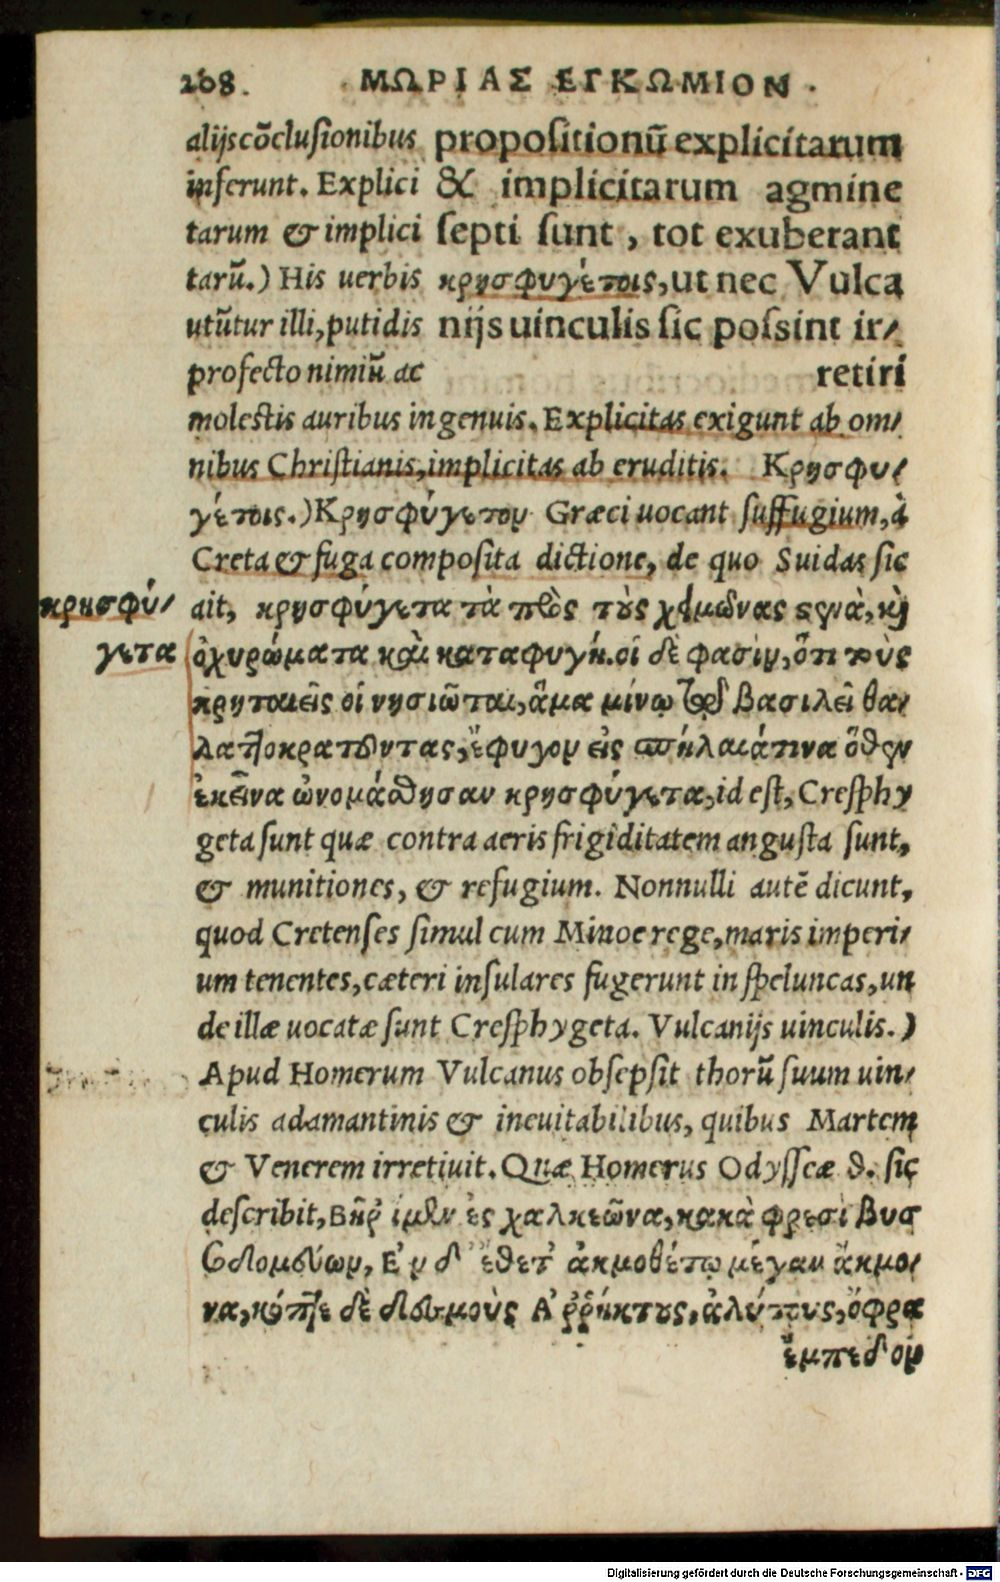 268. ΜΩΡΙΑΣ ΕΓΚΩΜΙΟΝ.
propositionũ explicitarum
& implicitarum agmine
septi sunt, tot exuberant
κρησφυγέτοις, ut nec Vulca
nijs uinculis sic possint ir/
retiri
alijs cõclusionibus
inferunt. Explici
tarum & implici
tarũ.) His uerbis
utũtur illi, putidis
profecto nimiũ ac
molestis auribus ingenuis. Explicitas exigunt ab om/
nibus Christianis, implicitas ab eruditis. Κρησφυ/
γέτοις.) Κρησφύγετον Græci uocant suffugium, à
Creta & fuga composita dictione, de quo Suidas sic
κρησφύ/
γετα
ait, κρησφύγετα τὰ πρὸς τοὺς χειμῶνας στενὰ, καὶ
ὀχυρώματα καὶ καταφυγή. οἱ δὲ φασὶν, ὅτι τοὺς
κρηταιεῖς οἱ νησιῶται, ἅμα μίνῳ τῷ βασιλεῖ θα/
λαττοκρατοῦντας, ἔφυγον εἰς σπήλαιάτινα ὅθεν
ἐκεῖνα ὠνομάσθησαν κρησφύγετα, id est, Cresphy
geta sunt quæ contra aeris frigiditatem angusta sunt,
& munitiones, & refugium. Nonnulli autẽ dicunt,
quod Cretenses simul cum Minoe rege, maris imperi/
um tenentes, cæteri insulares fugerunt in speluncas, un
de illæ uocatæ sunt Cresphygeta. Vulcanijs uinculis.)
Apud Homerum Vulcanus obsepsit thorũ suum uin/
culis adamantinis & ineuitabilibus, quibus Martem
& Venerem irretiuit. Quæ Homerus Odysseæ θ. sic
describit, Βῆῥ ἴμεν ἐς χαλκεῶνα, κακὰ φρεσὶ βυσ
σοδομεύων, Ἐν δ' ἔθετ' ἀκμοθέτῳ μέγαν ἄκμο/
να, κόπτε δὲ δεσμοὺς Ἀῤῥήκτους, ἀλύτους, ὄφρα
ἔμπεδον
Digitalisierung gefördert durch die Deutsche Forschungsgemeinschaft - DFG